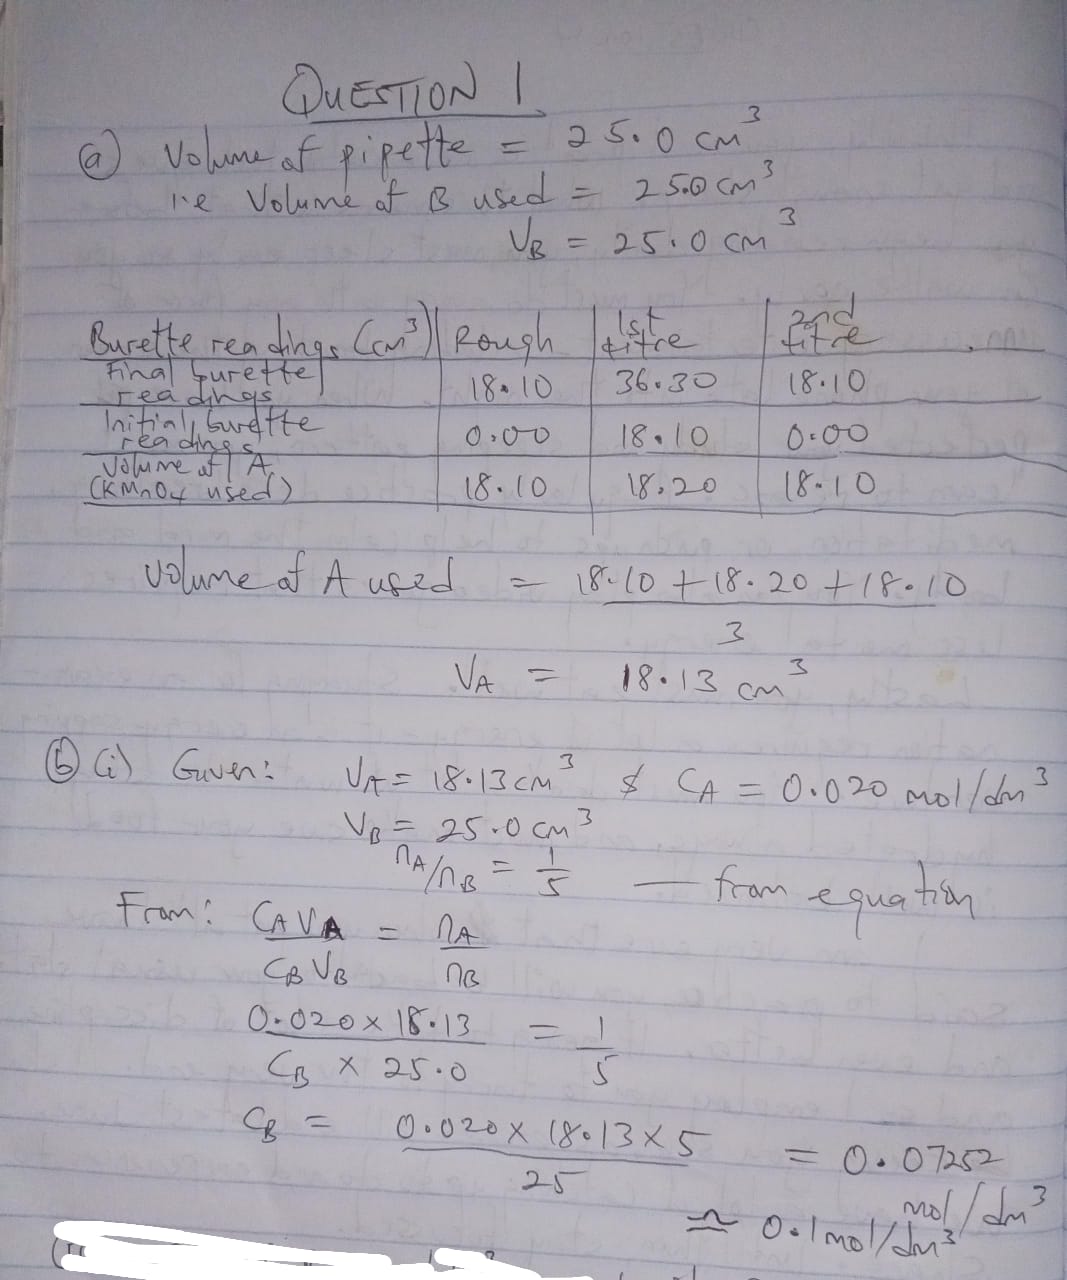 QUESTION 1
(a) Volume of pipette = 25.0 cm³
i.e Volume of B used = 25.0 cm³
V_B = 25.0 cm³
Burette readings (cm³) Rough 1st titre 2nd titre
Final burette readings 18.10 36.30 18.10
Initial burette readings 0.00 18.10 0.00
Volume of A (KMnO4 used) 18.10 18.20 18.10
Volume of A used = 18.10 + 18.20 + 18.10
3
V_A = 18.13 cm³
(b) (i) Given: V_A = 18.13 cm³ & C_A = 0.020 mol/dm³
V_B = 25.0 cm³
n_A/n_B = 1/5 — from equation
From: C_A V_A = n_A
C_B V_B n_B
0.020 x 18.13 = 1
C_B x 25.0 5
C_B = 0.020 x 18.13 x 5 = 0.07252
25 mol/dm³
≈ 0.1 mol/dm³